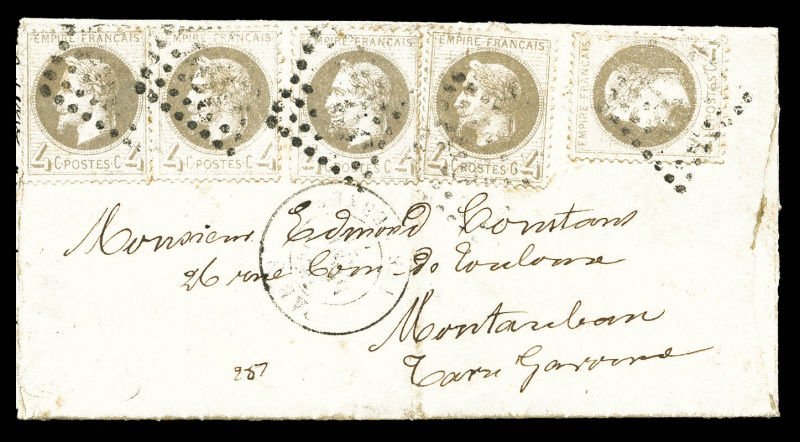 EMPIRE FRANCAIS EMPIRE FRANCAIS EMPIRE FRANCAIS EMPIRE FRANCAIS EMPIRE FRANCAIS
4 C POSTES C 4 4 C POSTES C 4 4 C POSTES C 4 4 C POSTES C 4 4 POSTES C 4
Monsieur Edmond Constans
26 rue Com. de Toulouse
Montauban
Tarn Garonne
257